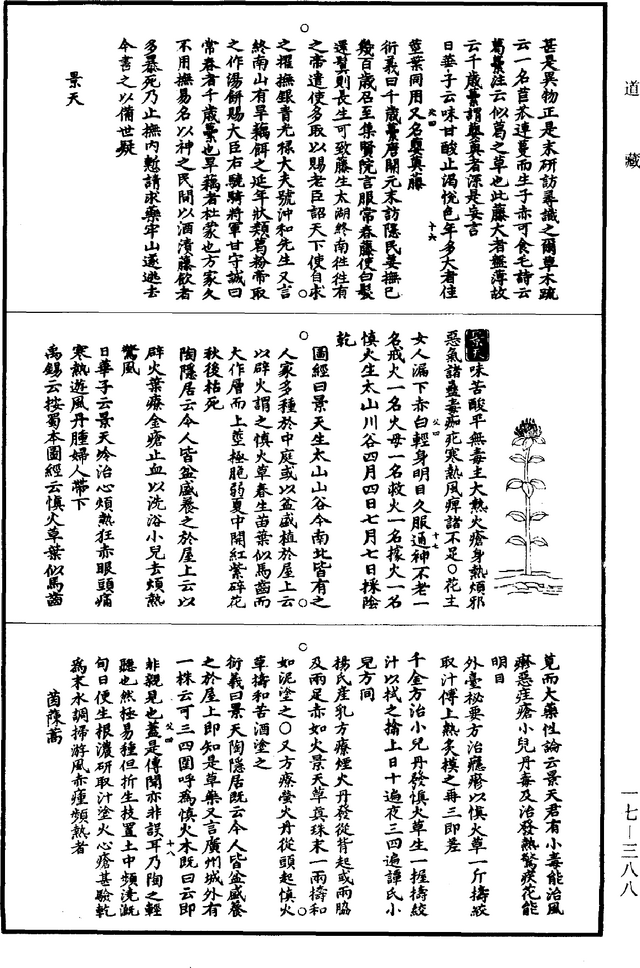 道藏
甚是異物正是末研訪尋識之爾草木䟽
云一名苣苽連蔓而生子赤可食毛詩云
葛藟注云似葛之草也此藤大者盤薄故
云千歲藟謂蘡薁者深是妄言
日華子云味甘酸止渴悅色年多大者佳
莖葉同用又名蘡薁藤
衍義曰千歲藟唐開元末訪隱民姜撫已
幾百歲召至集賢院言服常春藤使白髮
還鬒則長生可致藤生太湖終南往往有
之帝遣使多取以賜老臣詔天下使自求
之擢撫銀青光祿大夫號沖和先生又言
終南山有旱藕餌之延年狀類葛粉帝取
之作湯餅賜大臣右驍騎將軍甘守誠曰
常春者千歲藟也旱藕者杜蒙也方家久
不用撫易名以神之民間以酒漬藤飲者
多暴死乃止撫內慙請求藥牢山遂逃去
今書之以備世疑
景天
景天味苦酸平無毒主大熱火瘡身熱煩邪
惡氣諸蠱毒痂疕寒熱風痺諸不足○花主
女人漏下赤白輕身明目久服通神不老一
名戒火一名火母一名救火一名據火一名
慎火生太山川谷四月四日七月七日採陰
乾
圖經曰景天生太山山谷今南北皆有之
人家多種於中庭或以盆盛植於屋上云
以辟火謂之慎火草春生苗葉似馬齒而
大作層而上莖極脆弱夏中開紅紫碎花
秋後枯死
陶隱居云今人皆盆盛養之於屋上云以
辟火葉療金瘡止血以洗浴小兒去煩熱
驚風
日華子云景天冷治心煩熱狂赤眼頭痛
寒熱遊風丹腫婦人帶下
禹錫云按蜀本圖經云慎火草葉似馬齒
莧而大藥性論云景天君有小毒能治風
疹惡痒瘡小兒丹毒及治發熱驚疾花能
明目
外臺祕要方治癮疹以慎火草一斤擣絞
取汁傅上熱炙摸之再三即差
千金方治小兒丹發慎火草生一握擣絞
汁以拭之搶上日十遍夜三四遍譚氏小
兒方同
楊氏產乳方療煙火丹發從背起或兩脇
及兩足赤如火景天草真珠末一兩擣和
如泥塗之○又方療螢火丹從頭起慎火
草擣和苦酒塗之
衍義曰景天陶隱居既云今人皆盆盛養
之於屋上即知是草藥又言廣州城外有
一株云可三四圍呼為慎火木既曰云即
非親見也蓋是傳聞亦非誤耳乃陶之輕
聽也然極易種但折生枝置土中頻澆漑
旬日便生根濃研取汁塗火心瘡甚驗乾
為末水調掃游風赤瘇頻熱者
茵蔯蒿
一七—三八八